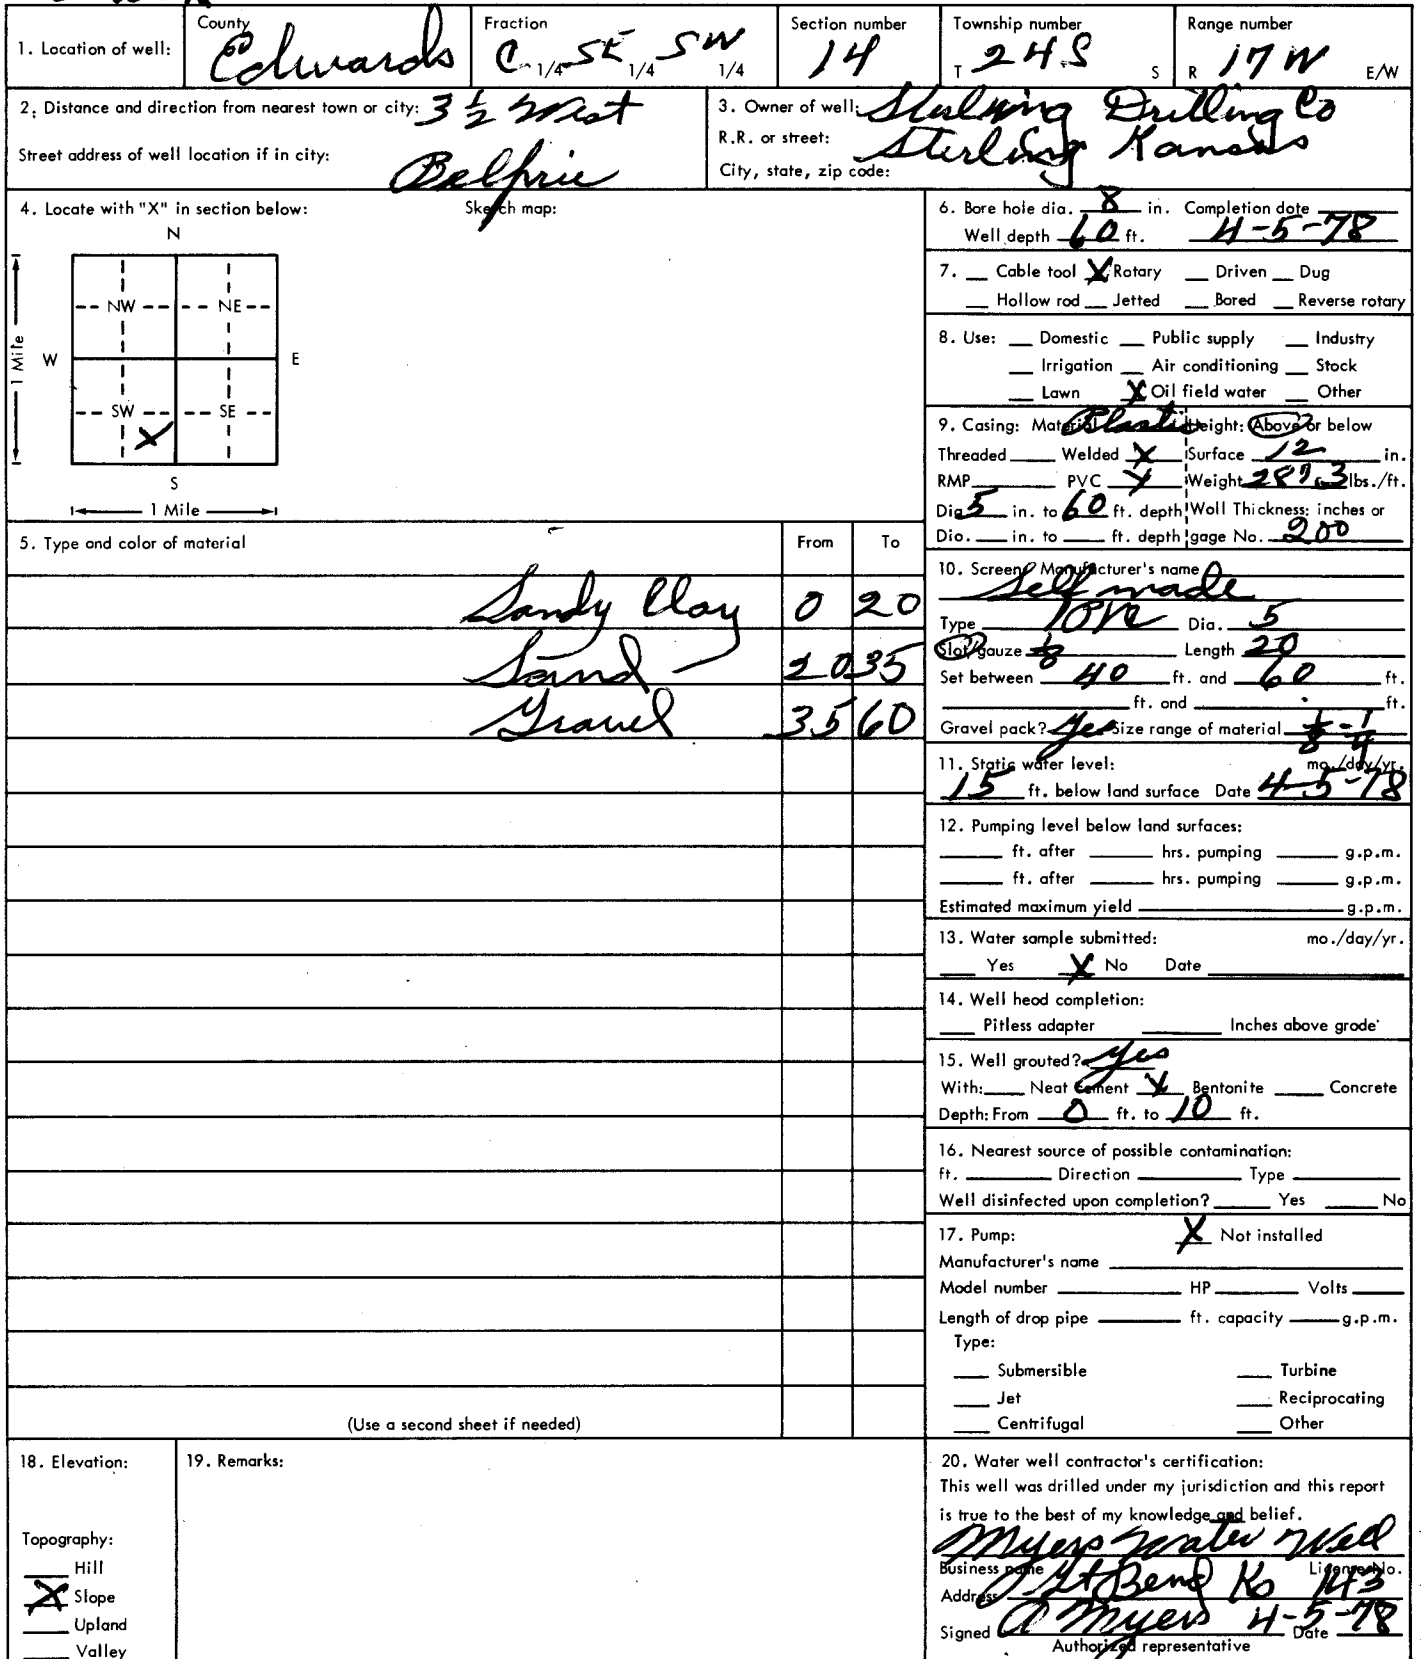 1. Location of well:
County
Edwards
Fraction
C 1/4 SE 1/4 SW 1/4
Section number
14
Township number
T 24S S
Range number
R 17W E/W
2. Distance and direction from nearest town or city: 3 1/2 West
Street address of well location if in city:
Belpre
3. Owner of well: Sterling Drilling Co
R.R. or street: Sterling Kansas
City, state, zip code:
4. Locate with "X" in section below:
Sketch map:
N
NW NE
W E
1 Mile
SW SE
X
S
1 Mile
5. Type and color of material From To
Sandy Clay 0 20
Sand 20 35
Gravel 35 60
(Use a second sheet if needed)
6. Bore hole dia. 8 in. Completion date
Well depth 60 ft. 4-5-78
7. __ Cable tool X Rotary __ Driven __ Dug
__ Hollow rod __ Jetted __ Bored __ Reverse rotary
8. Use: __ Domestic __ Public supply __ Industry
__ Irrigation __ Air conditioning __ Stock
__ Lawn X Oil field water __ Other
9. Casing: Material Plastic Height: Above or below
Threaded ____ Welded X Surface 12 in.
RMP ____ PVC X Weight lbs./ft.
Dia 5 in. to 60 ft. depth Wall Thickness: inches or
Dia. ___ in. to ___ ft. depth gage No. 200
10. Screen: Manufacturer's name
Self made
Type PVC Dia. 5
Slot/gauze 1/8 Length 20
Set between 40 ft. and 60 ft.
____ ft. and ____ ft.
Gravel pack? Yes Size range of material 1/8 - 1/4
11. Static water level: mo./day/yr.
15 ft. below land surface Date 4-5-78
12. Pumping level below land surfaces:
____ ft. after ____ hrs. pumping ____ g.p.m.
____ ft. after ____ hrs. pumping ____ g.p.m.
Estimated maximum yield ____ g.p.m.
13. Water sample submitted: mo./day/yr.
____ Yes X No Date ____
14. Well head completion:
____ Pitless adapter ____ Inches above grade
15. Well grouted? yes
With: ____ Neat Cement X Bentonite ____ Concrete
Depth: From 0 ft. to 10 ft.
16. Nearest source of possible contamination:
ft. ____ Direction ____ Type ____
Well disinfected upon completion? ____ Yes ____ No
17. Pump: X Not installed
Manufacturer's name ____
Model number ____ HP ____ Volts ____
Length of drop pipe ____ ft. capacity ____ g.p.m.
Type:
____ Submersible ____ Turbine
____ Jet ____ Reciprocating
____ Centrifugal ____ Other
18. Elevation:
Topography:
____ Hill
X Slope
____ Upland
____ Valley
19. Remarks:
20. Water well contractor's certification:
This well was drilled under my jurisdiction and this report
is true to the best of my knowledge and belief.
Myers Water Well
Business name License No.
Address Gt Bend Ks 143
Signed A Myers 4-5-78 Date
Authorized representative